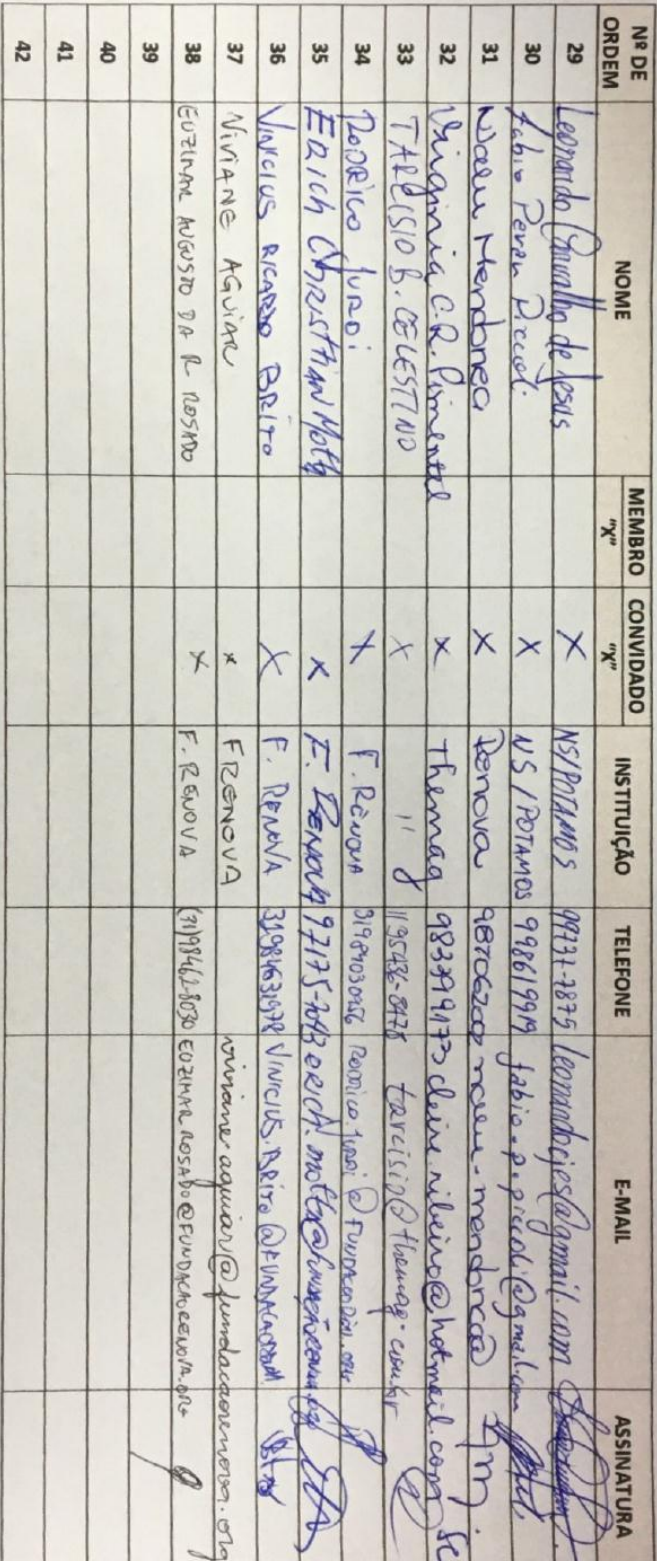 Nº DE ORDEM NOME MEMBRO "X" CONVIDADO "X" INSTITUIÇÃO TELEFONE E-MAIL ASSINATURA
29 Leonardo Carvalho de Jesus X NS/POTAMOS 99737-7879 leonardocjes@gmail.com
30 Fabio Perau Piccoli X NS/POTAMOS 998619919 fabio.p.piccoli@gmail.com
31 Mendonça X Renova mendonca@
32 Virginia C.R. Pimentel X Themag 983749173 cleire.ribeiro@hotmail.com
33 TARCISIO B. CELESTINO X " 1195436-8478 tarcisio@themag.com.br
34 RODRIGO X F. RENOVA
35 ERICH CHRISTIAN Motta X F. RENOVA 97175-7043
36 VINICIUS RICARDO BRITO X F. RENOVA 31984631978
37 VIVIANE AGUIAR X F RENOVA viviane.aguiar@fundacaorenova.org
38 EUZIMAR AUGUSTO DA R ROSADO X F. RENOVA (31)98462-8030 EUZIMAR.ROSADO@FUNDACAORENOVA.ORG
39
40
41
42